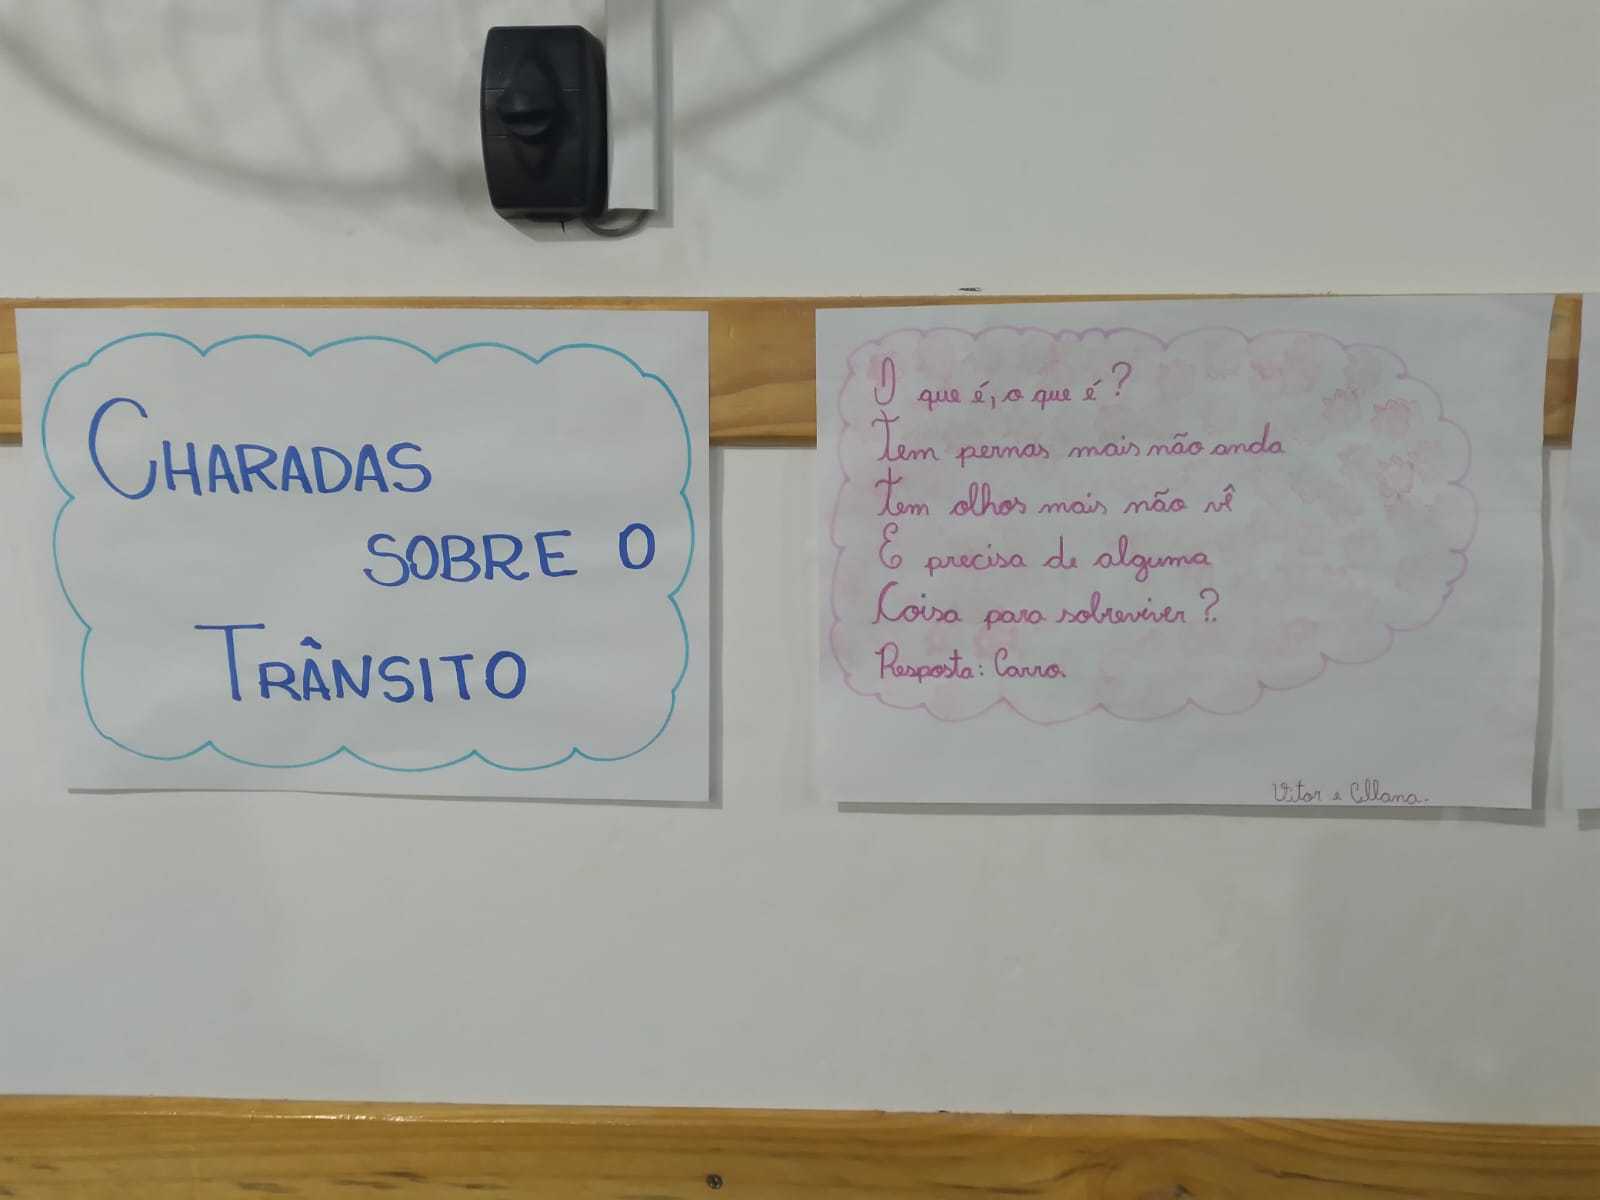 CHARADAS
SOBRE O
TRÂNSITO
O que é, o que é?
Tem pernas mais não anda
Tem olhos mais não vê
E precisa de alguma
Coisa para sobreviver?
Resposta: Carro.
Vitor e